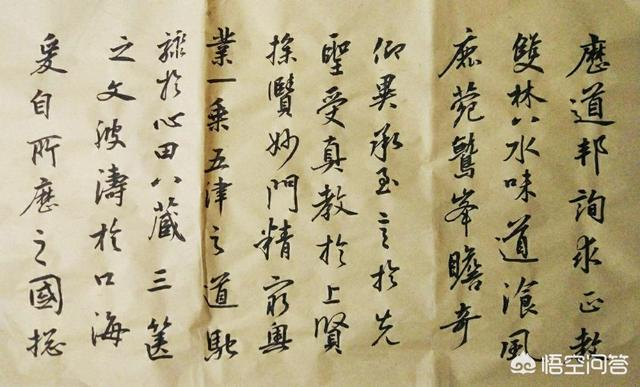 歷道邦詢求正教
雙林八水味道湌風
鹿菀鷲峯瞻奇
仰異承至言於先
聖受真教於上賢
探賢妙門精窮奧
業一乘五津之道馳
驟於心田八藏三篋
之文波濤於口海
爰自所歷之國揔
悟空问答